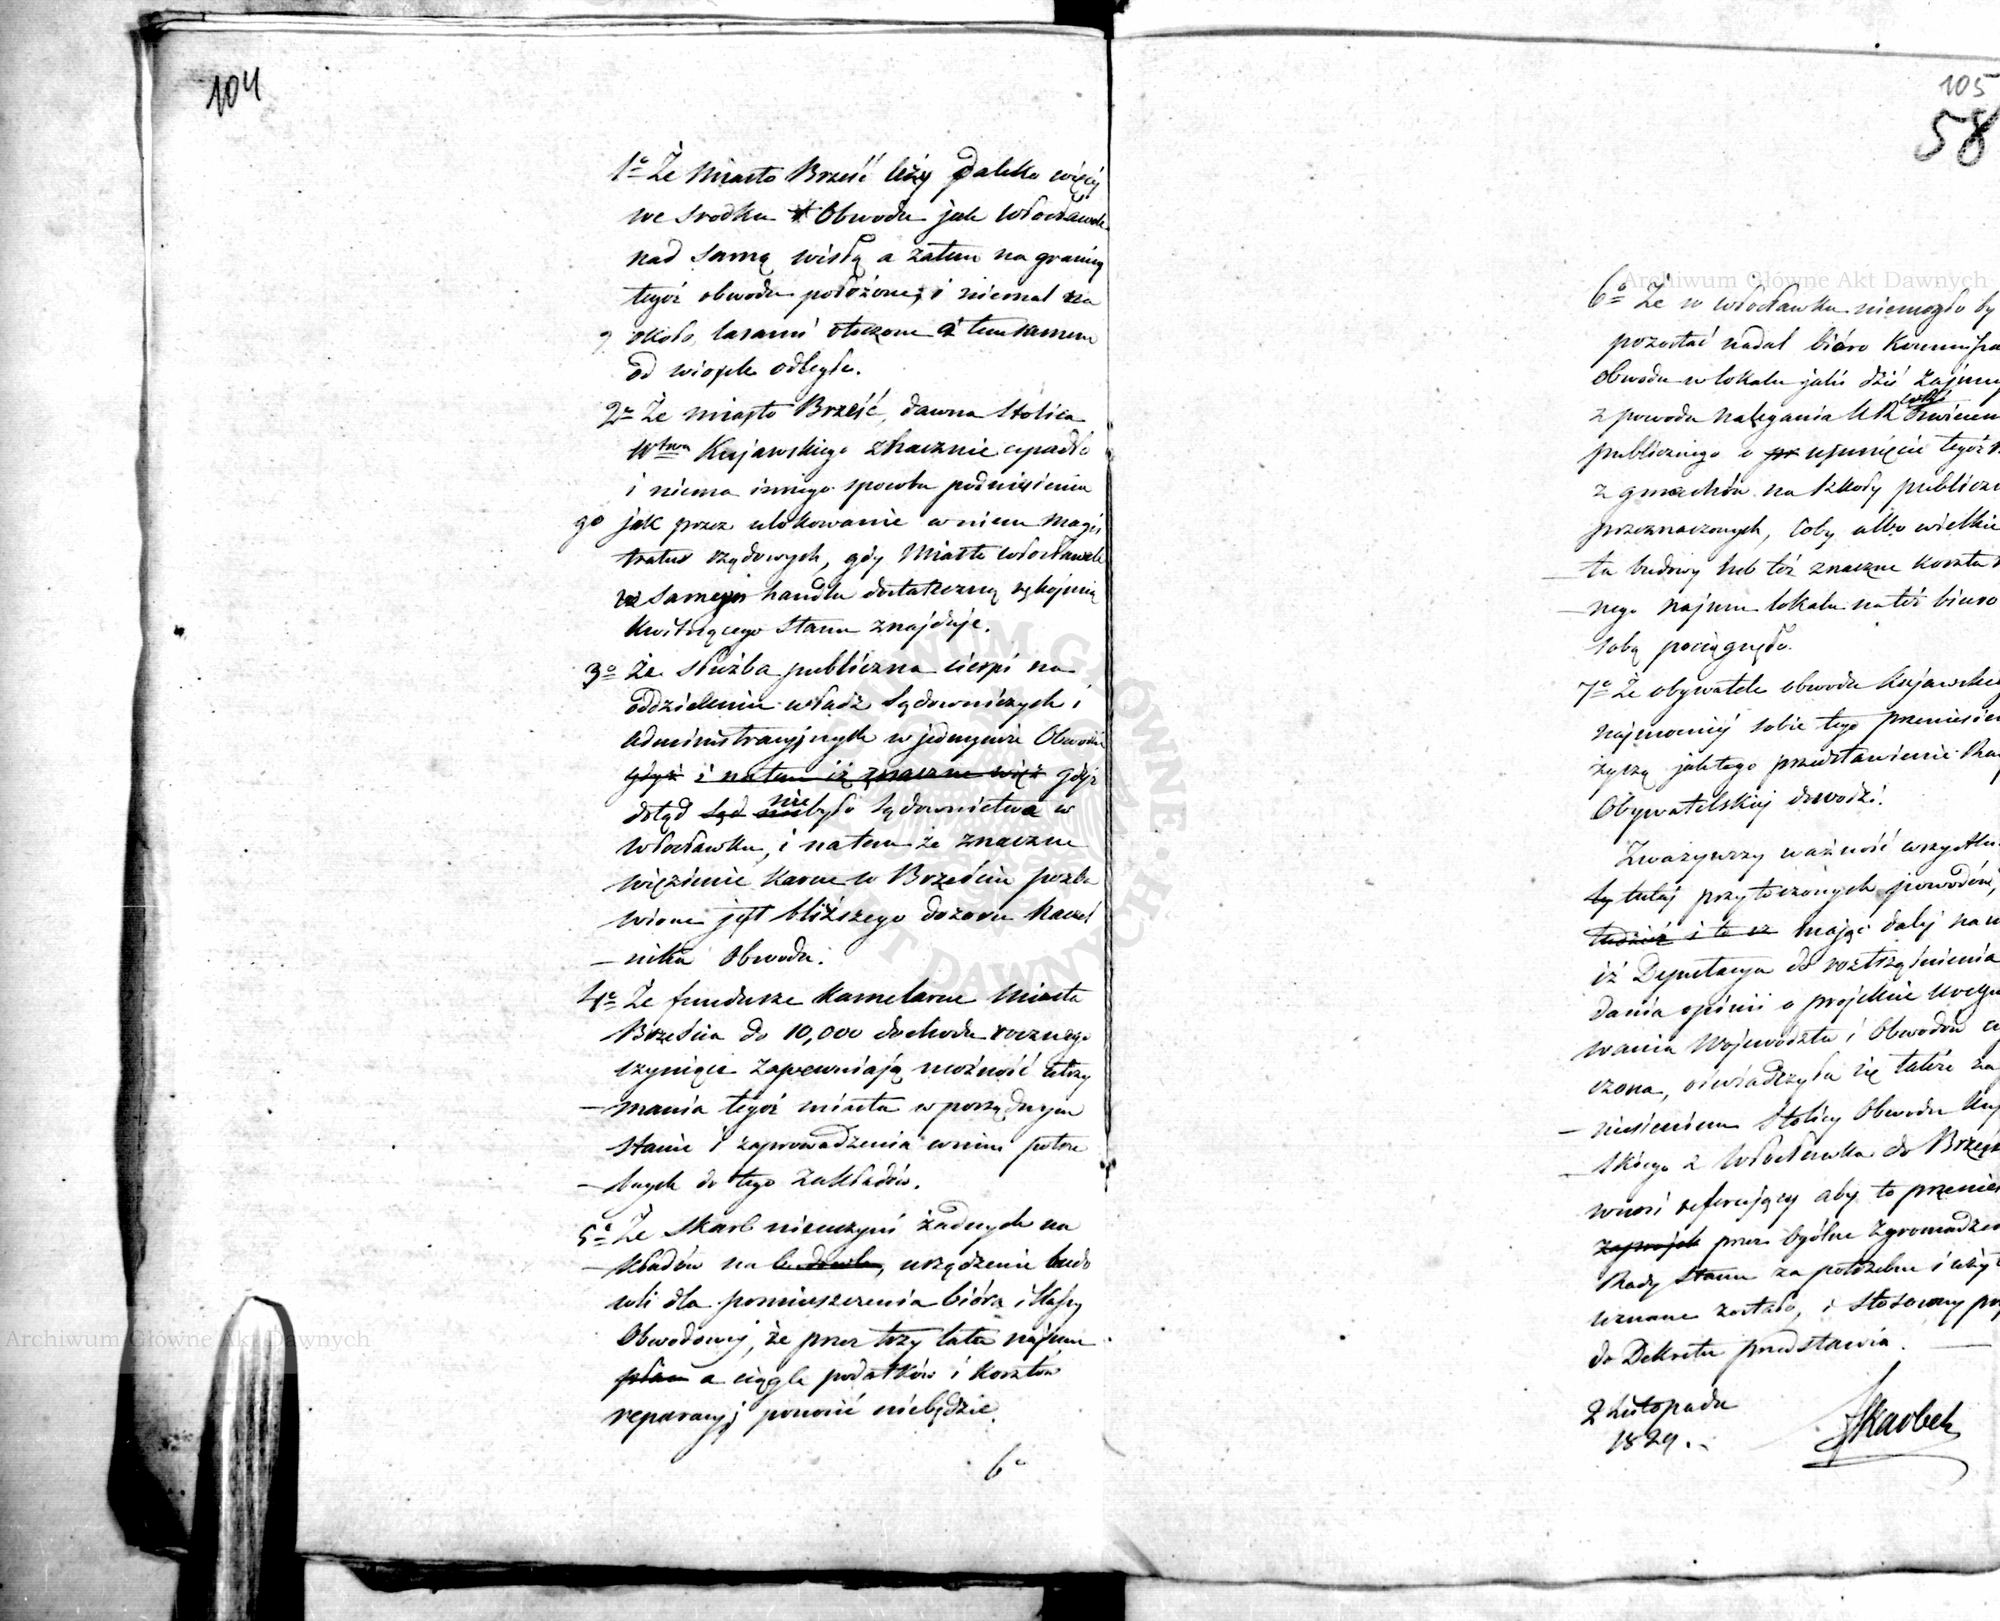 104
1o Że Miasto Brześć leży daleko więcej
we srodku Obwodu jak Włocławek
nad samą wisłą a zatem na granicy
tegoż obwodu położone, i niemal na
około lasami otoczone a temsamem
od wiosek odległe.
2o Że miasto Brześć, dawna Stolica
Wtwa Kujawskiego znacznie upadło
i niema innego sposobu podniesienia
go jak przez ulokowanie w niem magis
tratur rządowych, gdy Miasto Włocławek
w samym handlu dostateczną rękojmią
kwitnącego stanu znajduje.
3o że służba publiczna cierpi na
oddzieleniu władz Sądowniczych i
administracyjnych w jednymże Obwodzie
gdyż i na tem iż znaczne więź gdyż
dotąd Sąd nie było Sądownictwa w
Włocławku, i na tem że znaczne
więzienie karne w Brześciu pozba
wione jest bliższego dozoru Naczel
– nika Obwodu.
4o Że fundusze kamelarne Miasta
Brześcia do 10,000 dochodu rocznego
czyniące zapewniają możność utrzy
– mania tegoż miasta w porządnym
stanie i zaprowadzenia w nim potrze
– bnych do tego zakładów.
5o Że Skarb nieuczyni żadnych na
– kładów na budowle, urządzenie budo
wli dla pomieszczenia bióra i Kassy
Obwodowej, że przez trzy lata najmu
płacu a ciągle podatków i kosztów
reparacyj ponosić niebędzie.
6o
105
58
Archiwum Główne Akt Dawnych
6o Że w Włocławku niemogło by
pozostać nadal bióro Kommissa
obwodu w lokalu jakie dziś zajmuje
z powodu nalegania KR Oświecen
publicznego o usunięcie tegoż
z gmachów na Szkoły publiczne
przeznaczonych, coby albo wielkie
– ta budowy lub też znaczne koszta
– nego najmu lokalu na też biuro
sobą pociągnęło.
7o Że obywatele obwodu Kujawskie
najmocniej sobie tego przeniesien
życzą jak tego przedstawienie Rad
Obywatelskiej dowodzi.
Zważywszy ważność wszystki
tutaj przytoczonych powodów,
tudzież i to iż mając dalej na
iż Deputacya do roztrząśnienia
dania opinii o projekcie uregu
wania Województw i Obwodów
czona, oświadczyła się także za
– niesieniem Stolicy Obwodu Kuj
– skiego z Włocławka do Brześ
wnosi referujący aby to przenies
przez Ogólne Zgromadzen
Rady Stanu za potrzebne i użyt
uznane zostało, i stosowny pro
do Dekretu przedstawia. –
2 Listopada
1829.
Skarbek
Archiwum Główne Akt Dawnych
ARCHIWUM GŁÓWNE AKT DAWNYCH